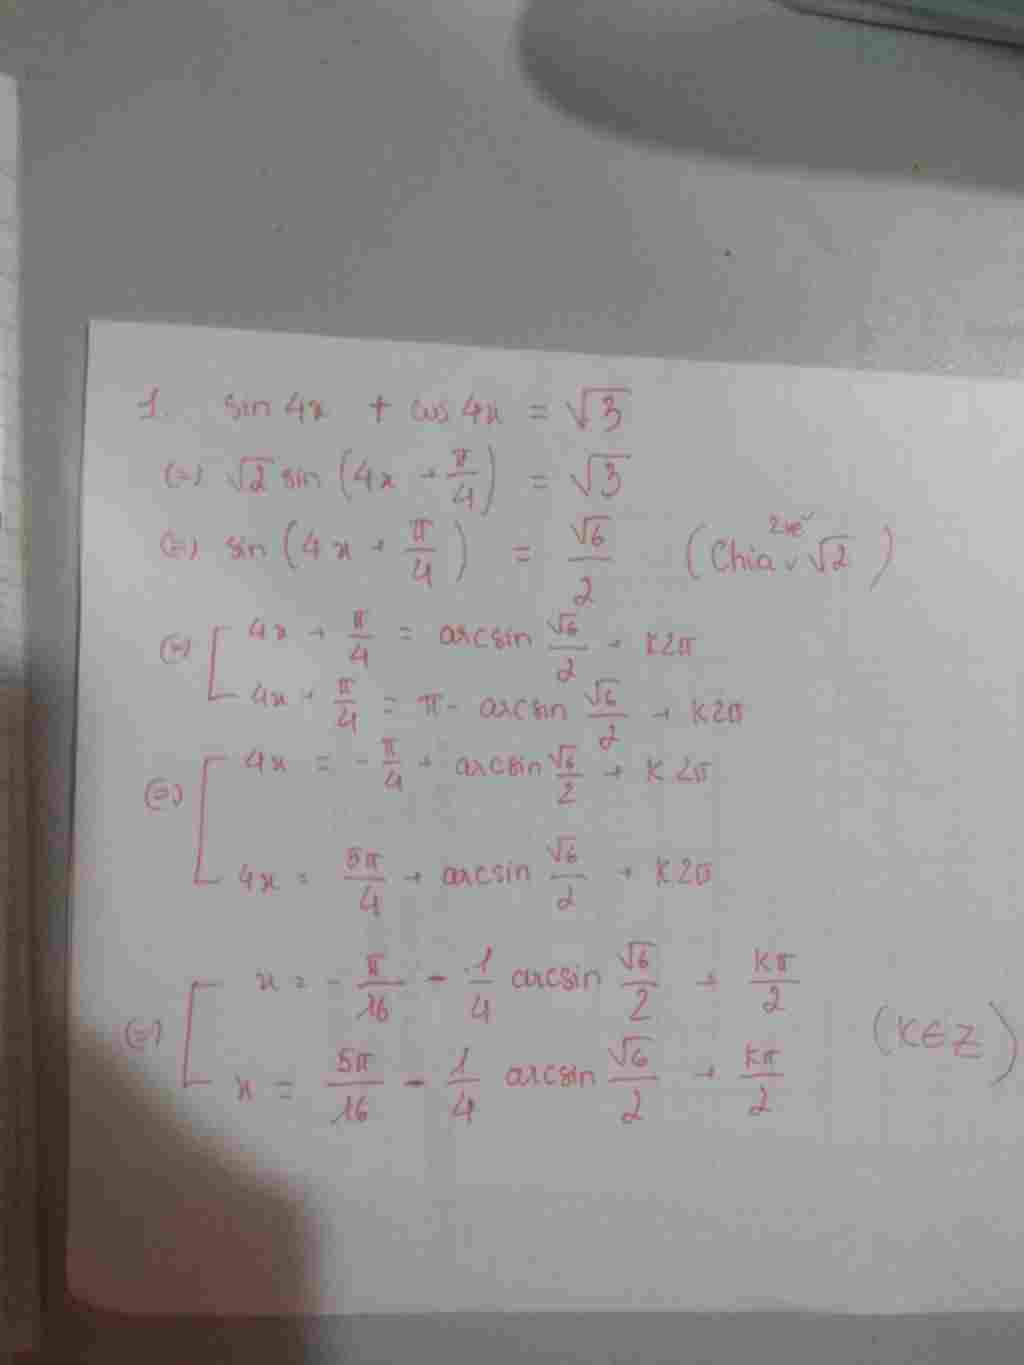 1. sin 4x + cos 4x = √3
(=) √2 sin (4x + π/4) = √3
(=) sin (4x + π/4) = √6/2 (Chia 2 vế √2)
(=) [ 4x + π/4 = arcsin √6/2 + k2π
4x + π/4 = π - arcsin √6/2 + k2π
(=) [ 4x = -π/4 + arcsin √6/2 + k2π
4x = 5π/4 + arcsin √6/2 + k2π
(=) [ x = -π/16 - 1/4 arcsin √6/2 + kπ/2
x = 5π/16 - 1/4 arcsin √6/2 + kπ/2 (k∈Z)